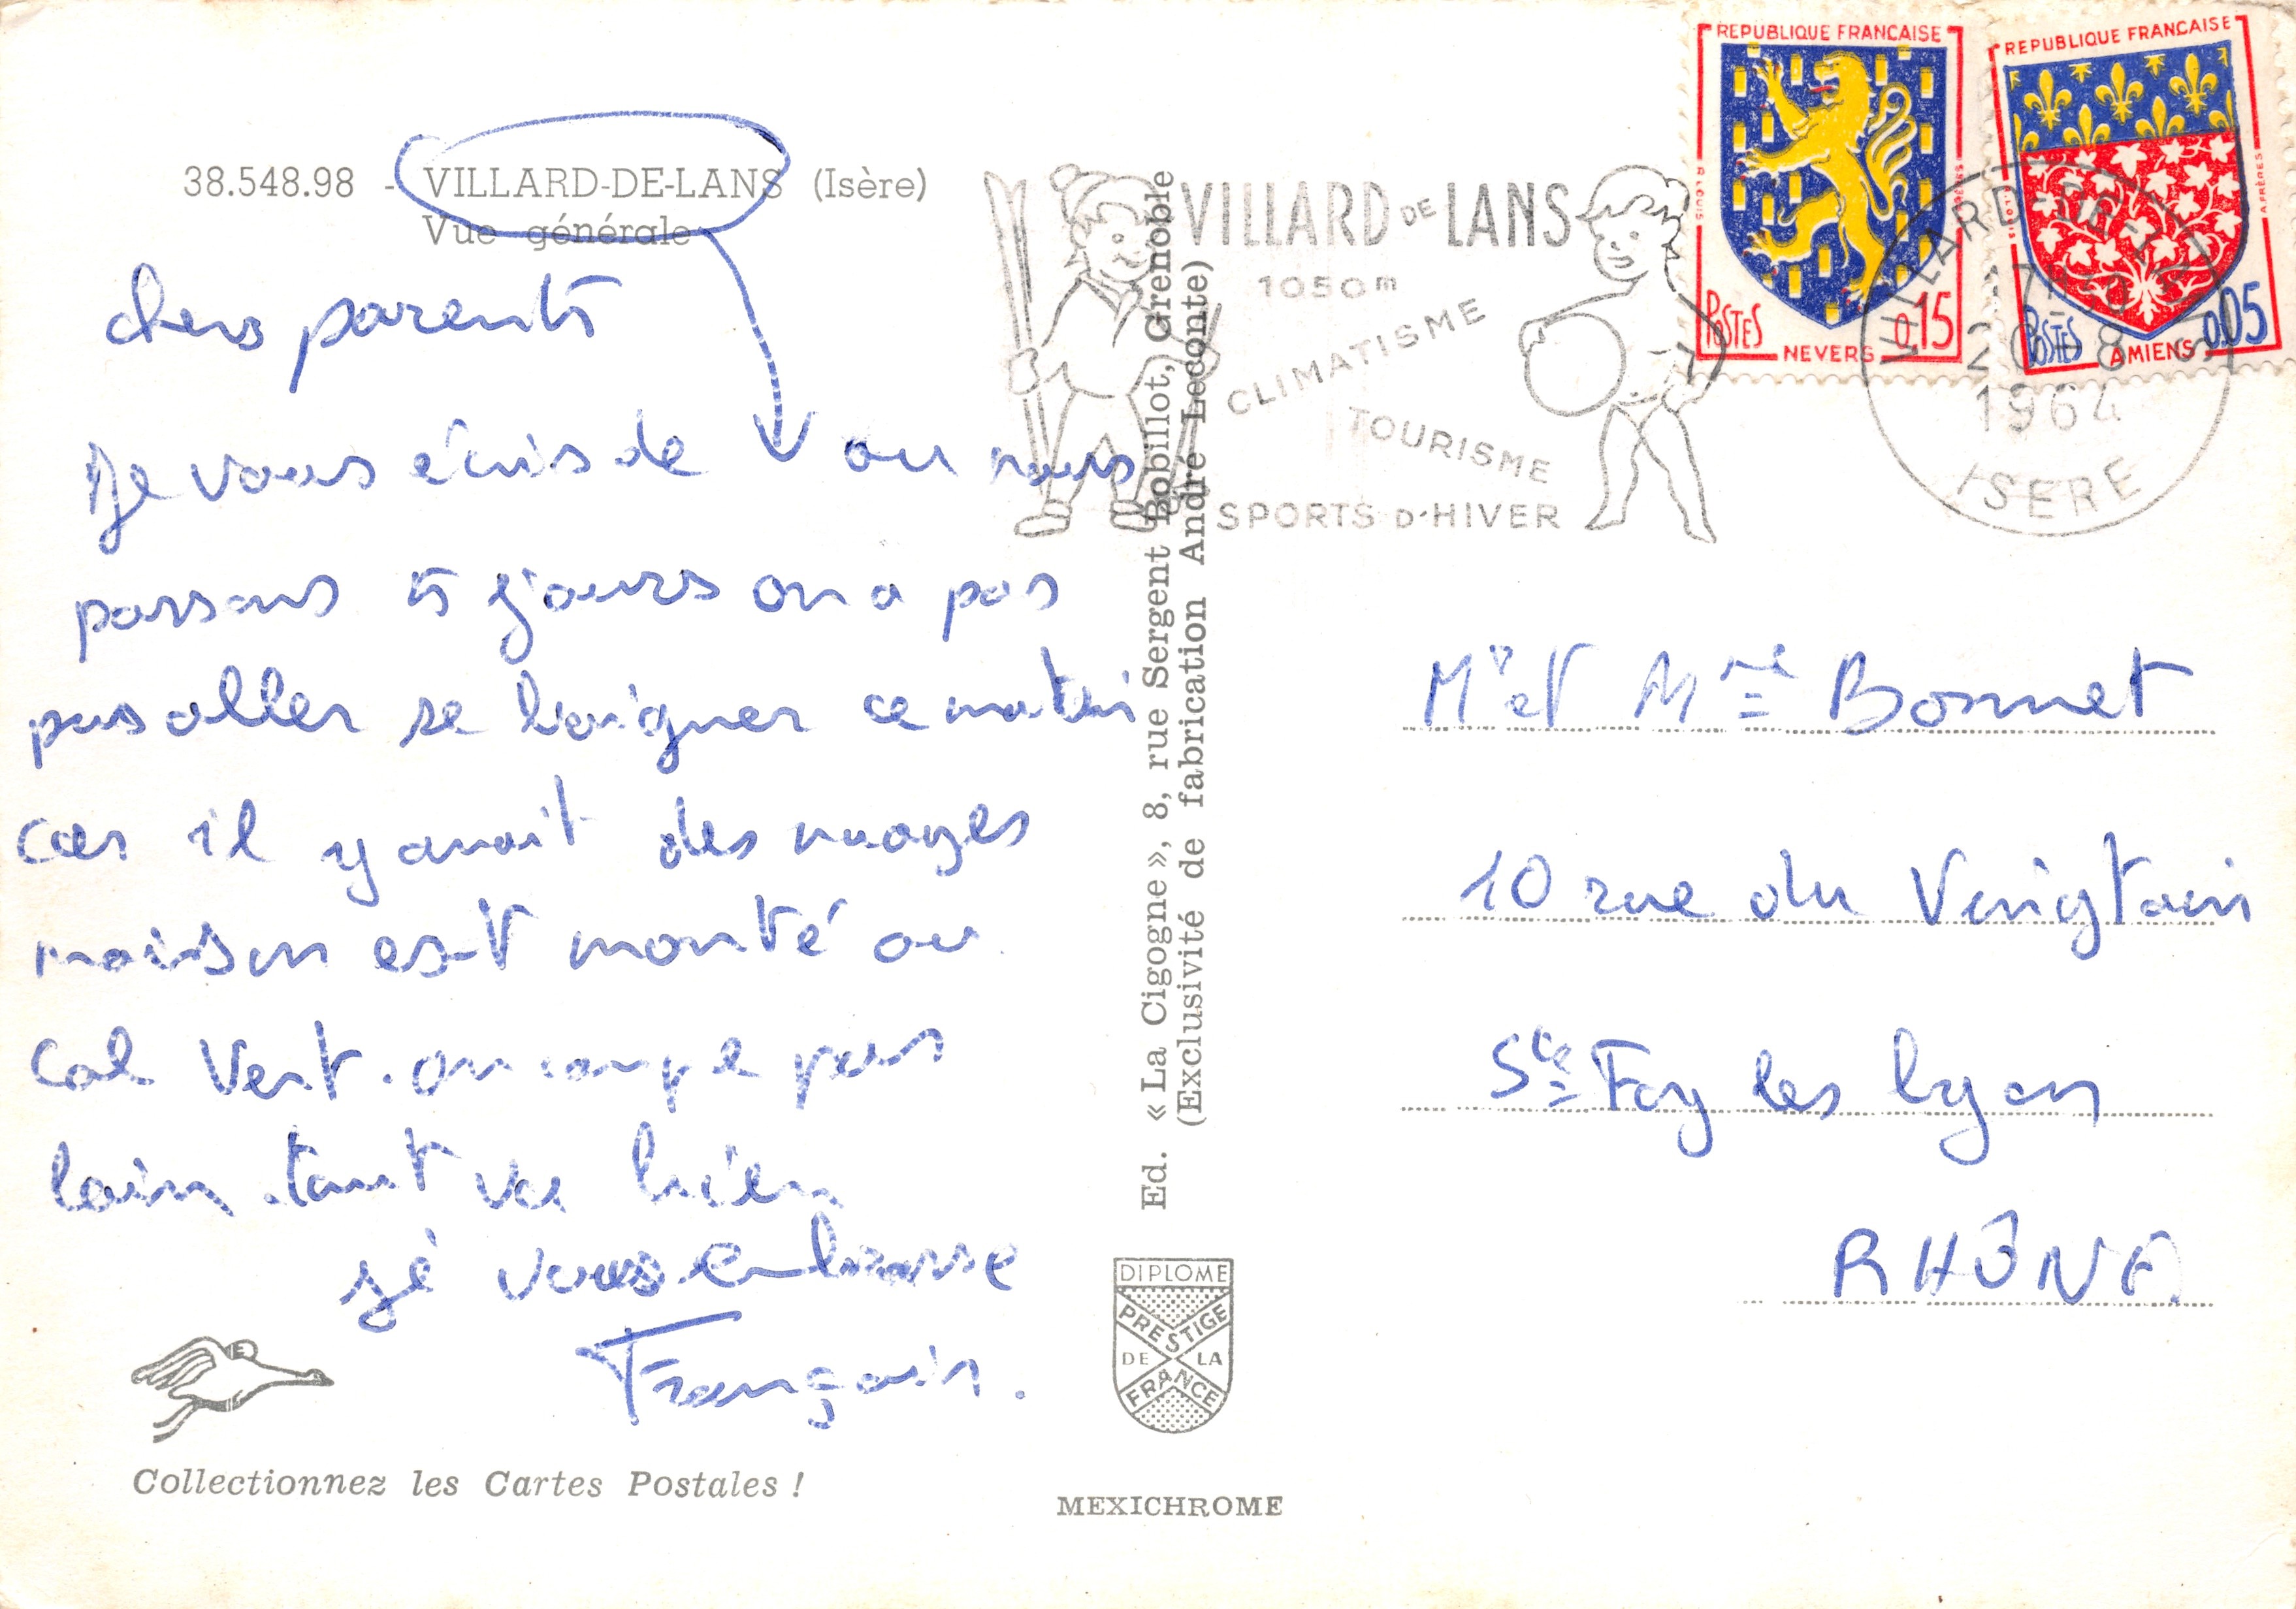 38.548.98 - VILLARD-DE-LANS (Isère)
Vue générale
chers parents
Je vous écris de V ou nous
passons 5 jours on a pas
pus aller se baigner ce matin
car il y avait des nuages
maison est monté au
Col Vert. on campe pas
loin. tout va bien
jé vous embrasse
François.
Collectionnez les Cartes Postales !
Ed. « La Cigogne », 8, rue Sergent Bobillot, Grenoble
(Exclusivité de fabrication André Leconte)
DIPLOME
PRESTIGE
DE LA
FRANCE
MEXICHROME
VILLARD DE LANS
1050m
CLIMATISME
TOURISME
SPORTS D'HIVER
REPUBLIQUE FRANCAISE
POSTES 0,15
NEVERS
REPUBLIQUE FRANCAISE
POSTES 0,05
AMIENS
VILLARD-DE-LANS
1964
ISERE
Mr et Mme Bonnet
10 rue du Vingtain
Ste Foy les lyon
RHÔNE